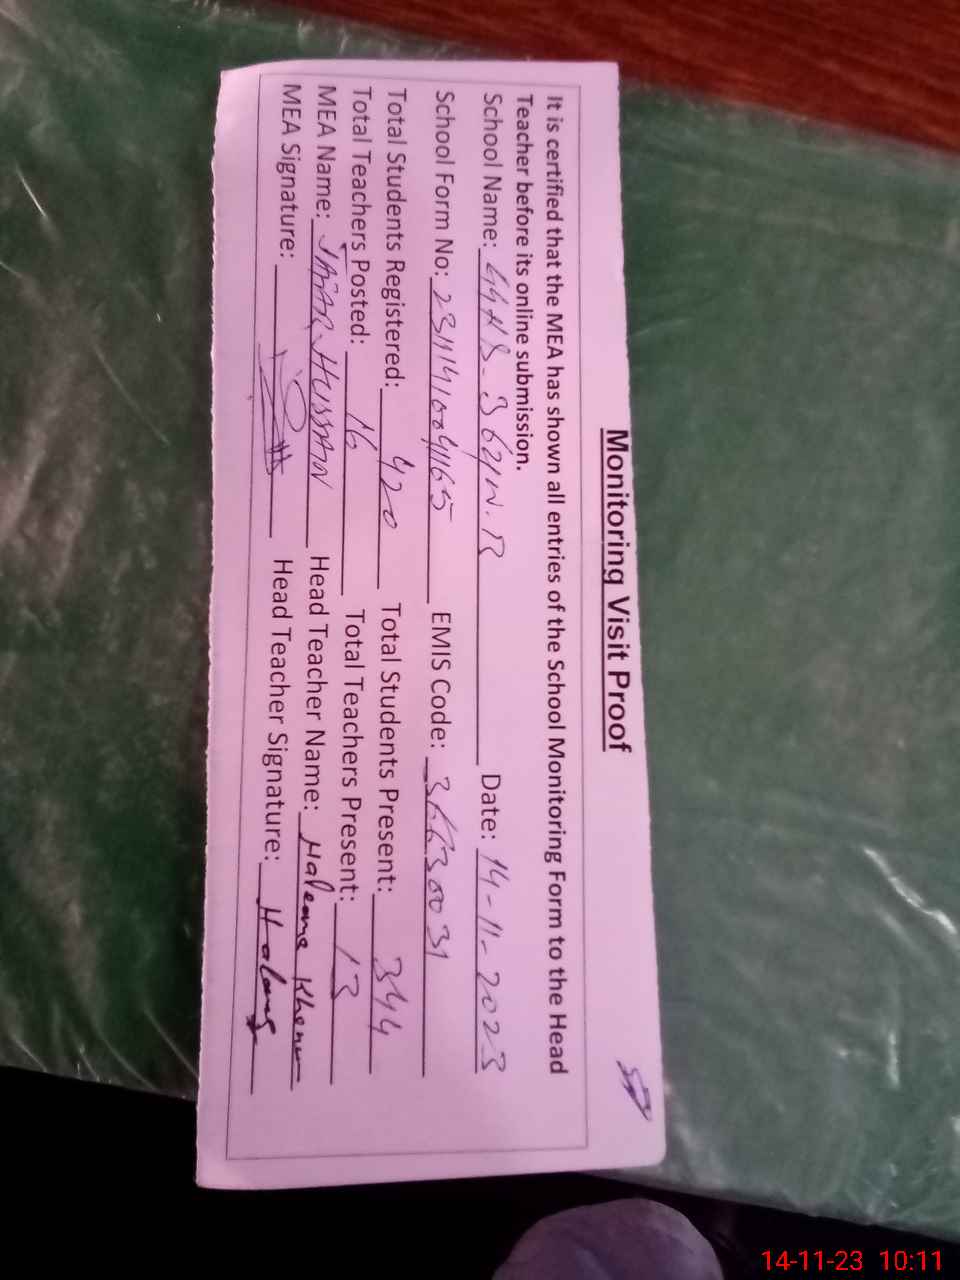 Monitoring Visit Proof
It is certified that the MEA has shown all entries of the School Monitoring Form to the Head
Teacher before its online submission.
School Name: GGHS-36y W.B Date: 14-11-2023
School Form No: EMIS Code: 36630031
Total Students Registered: 420 Total Students Present: 344
Total Teachers Posted: 16 Total Teachers Present: 13
MEA Name: JAFAR HUSSAIN Head Teacher Name: Haleema
MEA Signature: Head Teacher Signature:
14-11-23 10:11